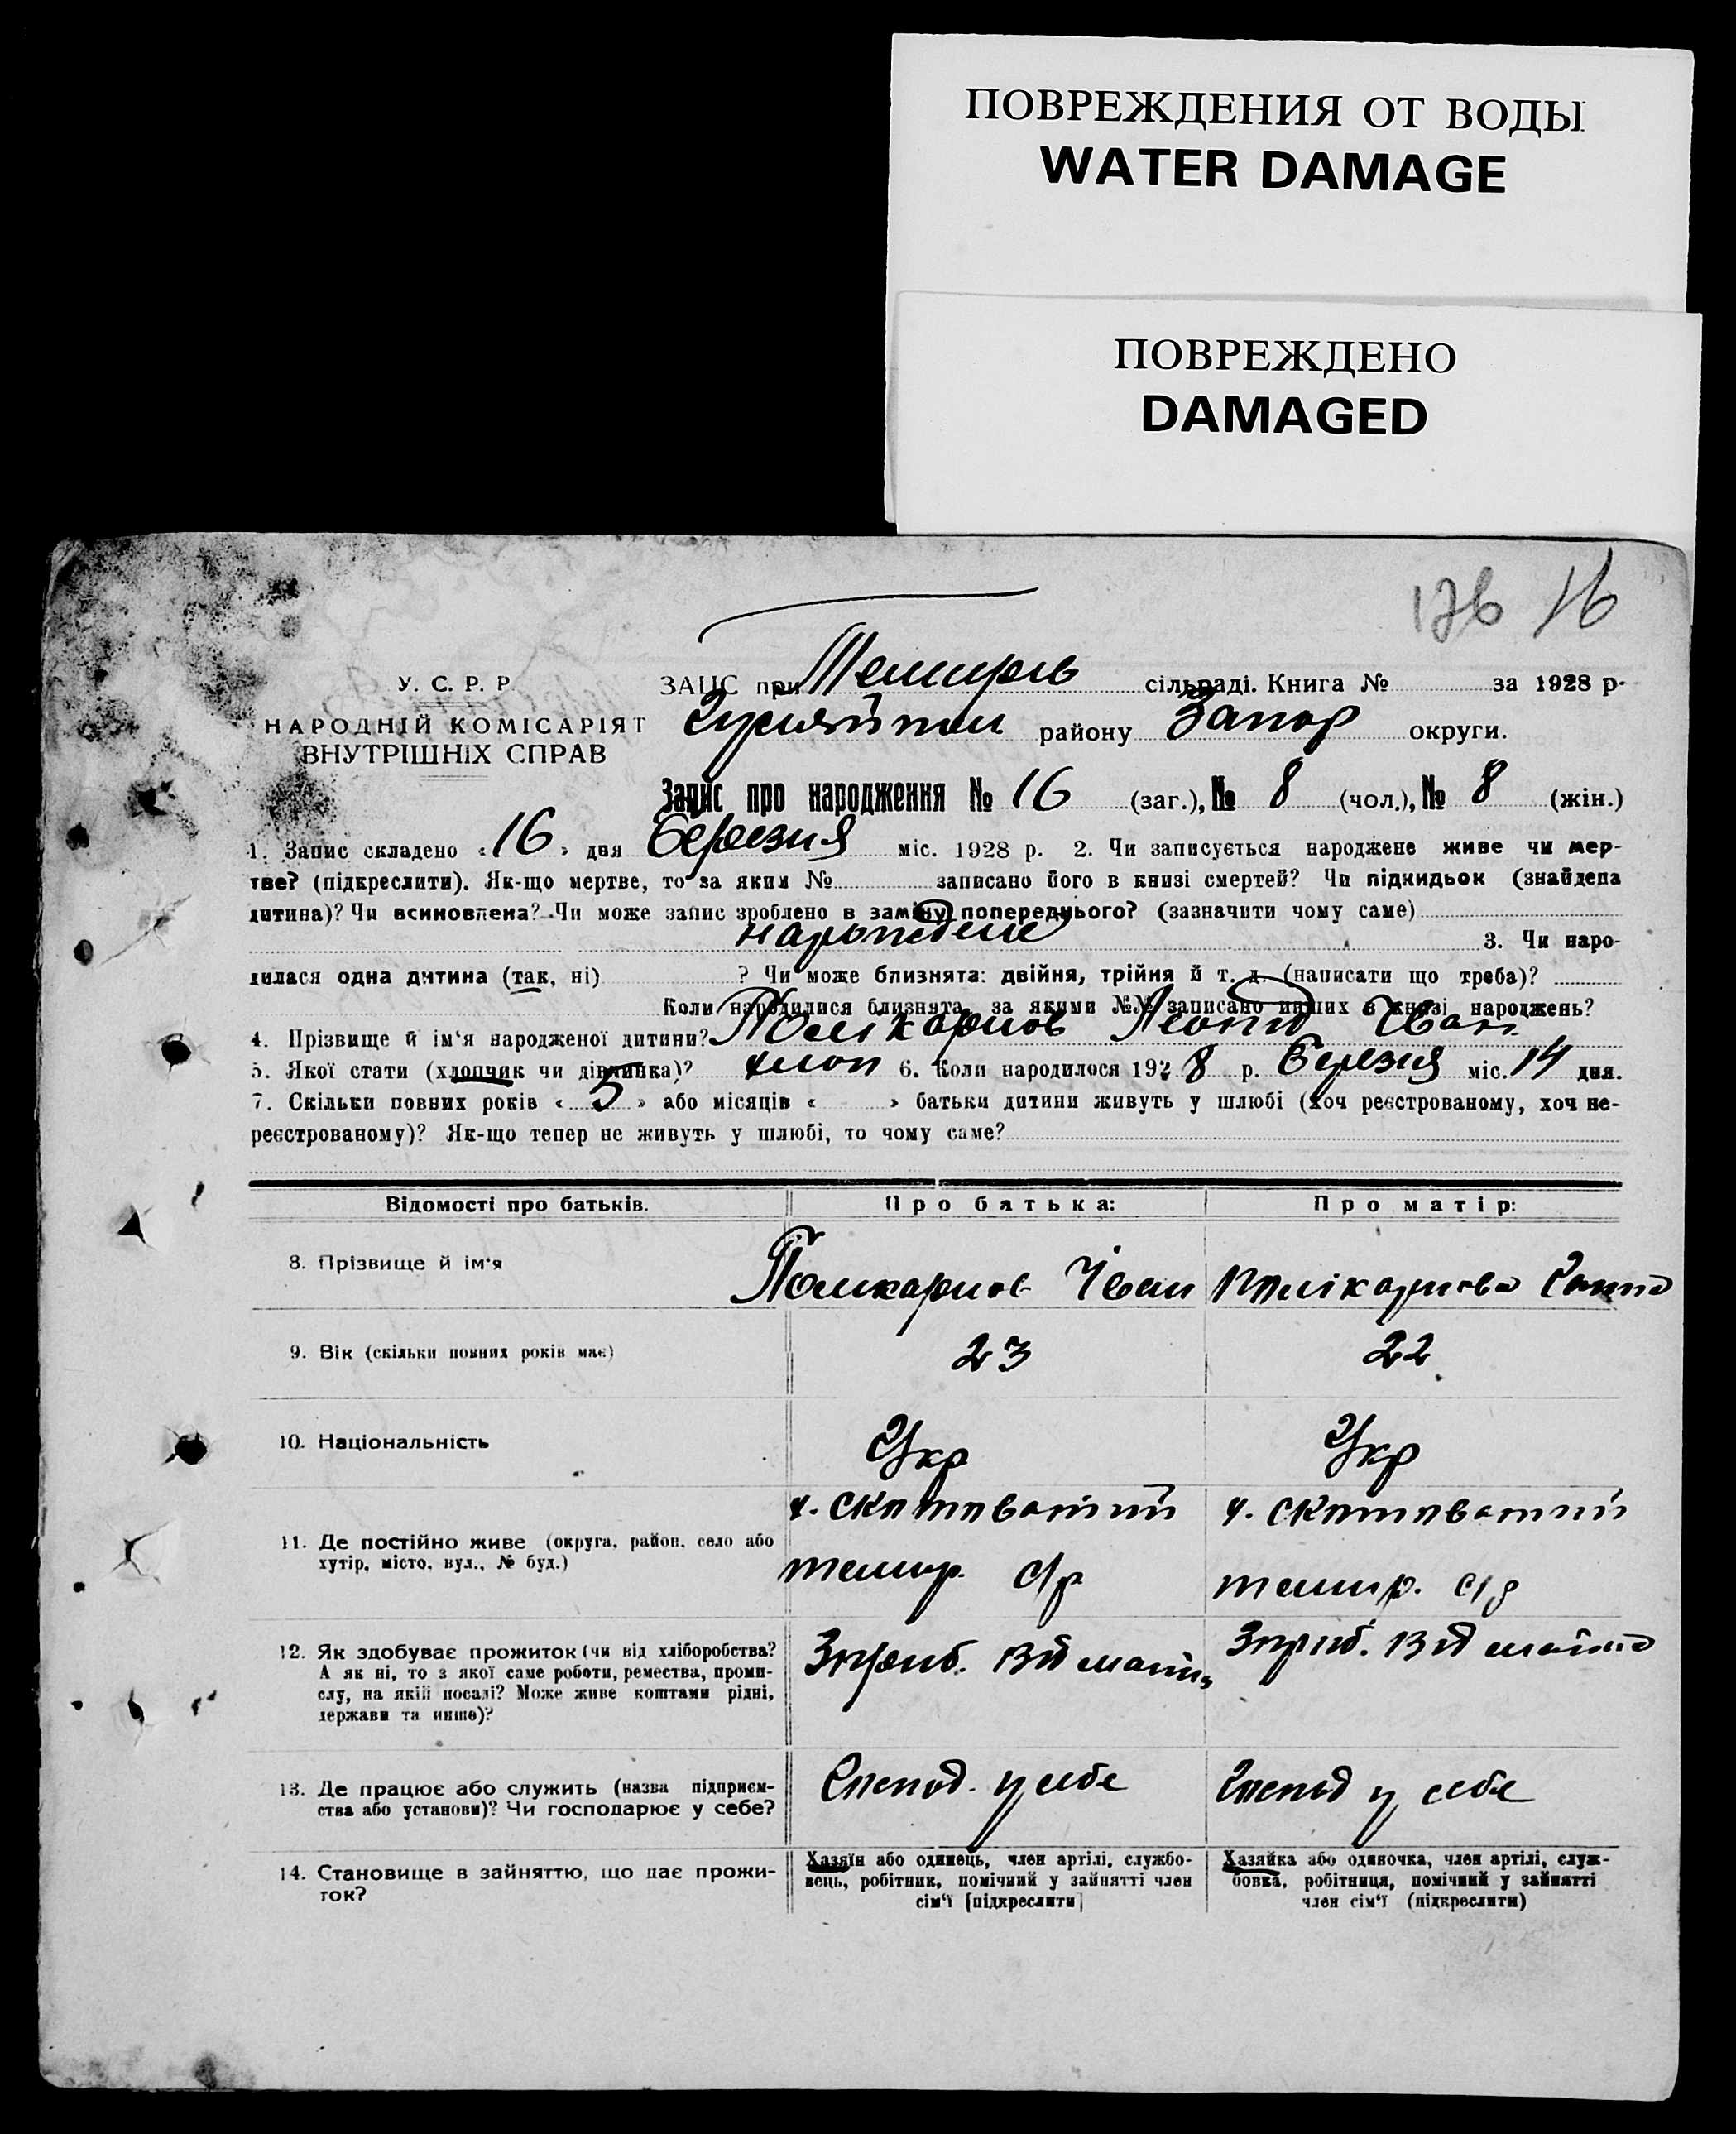 ПОВРЕЖДЕНИЯ ОТ ВОДЫ
WATER DAMAGE
ПОВРЕЖДЕНО
DAMAGED
176 16
У. С. Р. Р.
НАРОДНІЙ КОМІСАРІЯТ
ВНУТРІШНІХ СПРАВ
ЗАГС при Темирів сільраді. Книга № за 1928 р.
району Запор округи.
Запис про народження № 16 (заг.), № 8 (чол.), № 8 (жін.)
1. Запис складено «16» дня Березня міс. 1928 р. 2. Чи записується народжене живе чи мер-
тве? (підкреслити). Як-що мертве, то за яким № записано його в книзі смертей? Чи підкидьок (знайдена
дитина)? Чи всиновлена? Чи може запис зроблено в заміну попереднього? (зазначити чому саме)
народжене 3. Чи наро-
дилася одна дитина (так, ні) ? Чи може близнята: двійня, трійня й т. д. (написати що треба)?
Коли народилися близнята, за якими №№ записано инших в книзі народжень?
4. Прізвище й ім‘я народженої дитини? Полікарпов Леонид Иван
5. Якої стати (хлопчик чи дівчинка)? хлоп 6. Коли народилося 1928 р. Березня міс. 14 дня.
7. Скільки повних років «5» або місяців « » батьки дитини живуть у шлюбі (хоч реєстрованому, хоч не-
реєстрованому)? Як-що тепер не живуть у шлюбі, то чому саме?
Відомості про батьків. Про батька: Про матір:
8. Прізвище й ім‘я Поликарпов Іван Полікарпова
9. Вік (скільки повних років має) 23 22
10. Національність Укр Укр
х. Скотоватий х. Скотоватий
11. Де постійно живе (округа, район, село або
хутір, місто, вул., № буд.)
темир. с/р темир. с/р
12. Як здобуває прожиток (чи від хліборобства?
А як ні, то з якої саме роботи, ремества, проми-
слу, на якій посаді? Може живе коштами рідні,
держави та инше)?
13. Де працює або служить (назва підприєм-
ства або установи)? Чи господарює у себе?
Господ. у себе Господ у себе
14. Становище в зайняттю, що дає прожи-
ток?
Хазяїн або одинець, член артілі, службо-
вець, робітник, помічний у зайнятті член
сім‘ї [підкреслити]
Хазяйка або одиночка, член артілі, служ-
бовка, робітниця, помічний у зайнятті
член сім‘ї (підкреслити)